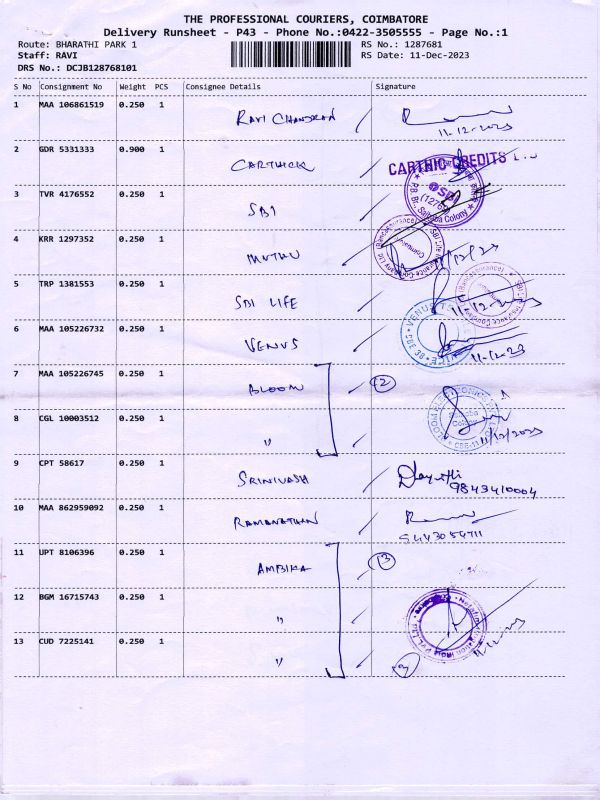 THE PROFESSIONAL COURIERS, COIMBATORE
Delivery Runsheet - P43 - Phone No.:0422-3505555 - Page No.:1
Route: BHARATHI PARK 1 RS No.: 1287681
Staff: RAVI RS Date: 11-Dec-2023
DRS No.: DCJB128768101
S No Consignment No Weight PCS Consignee Details Signature
1 MAA 106861519 0.250 1 RAVI CHANDRAN
11-12-2023
2 GDR 5331333 0.900 1 CARTHICK CARTHIC CREDITS
3 TVR 4176552 0.250 1 SBI SBI
Saibaba Colony
4 KRR 1297352 0.250 1 MUTHU
5 TRP 1381553 0.250 1 SBI LIFE
11-12-2023
6 MAA 105226732 0.250 1 VENUS VENUS CBE-38
11-12-23
7 MAA 105226745 0.250 1 BLOOM 2
8 CGL 10003512 0.250 1 〃 Saibaba Colony CBE-11
11/12/2023
9 CPT 58617 0.250 1 SRINIVASH
9843410004
10 MAA 862959092 0.250 1 RAMANATHAN
11 UPT 8106396 0.250 1 AMBIKA 3
12 BGM 16715743 0.250 1 〃
13 CUD 7225141 0.250 1 〃 3